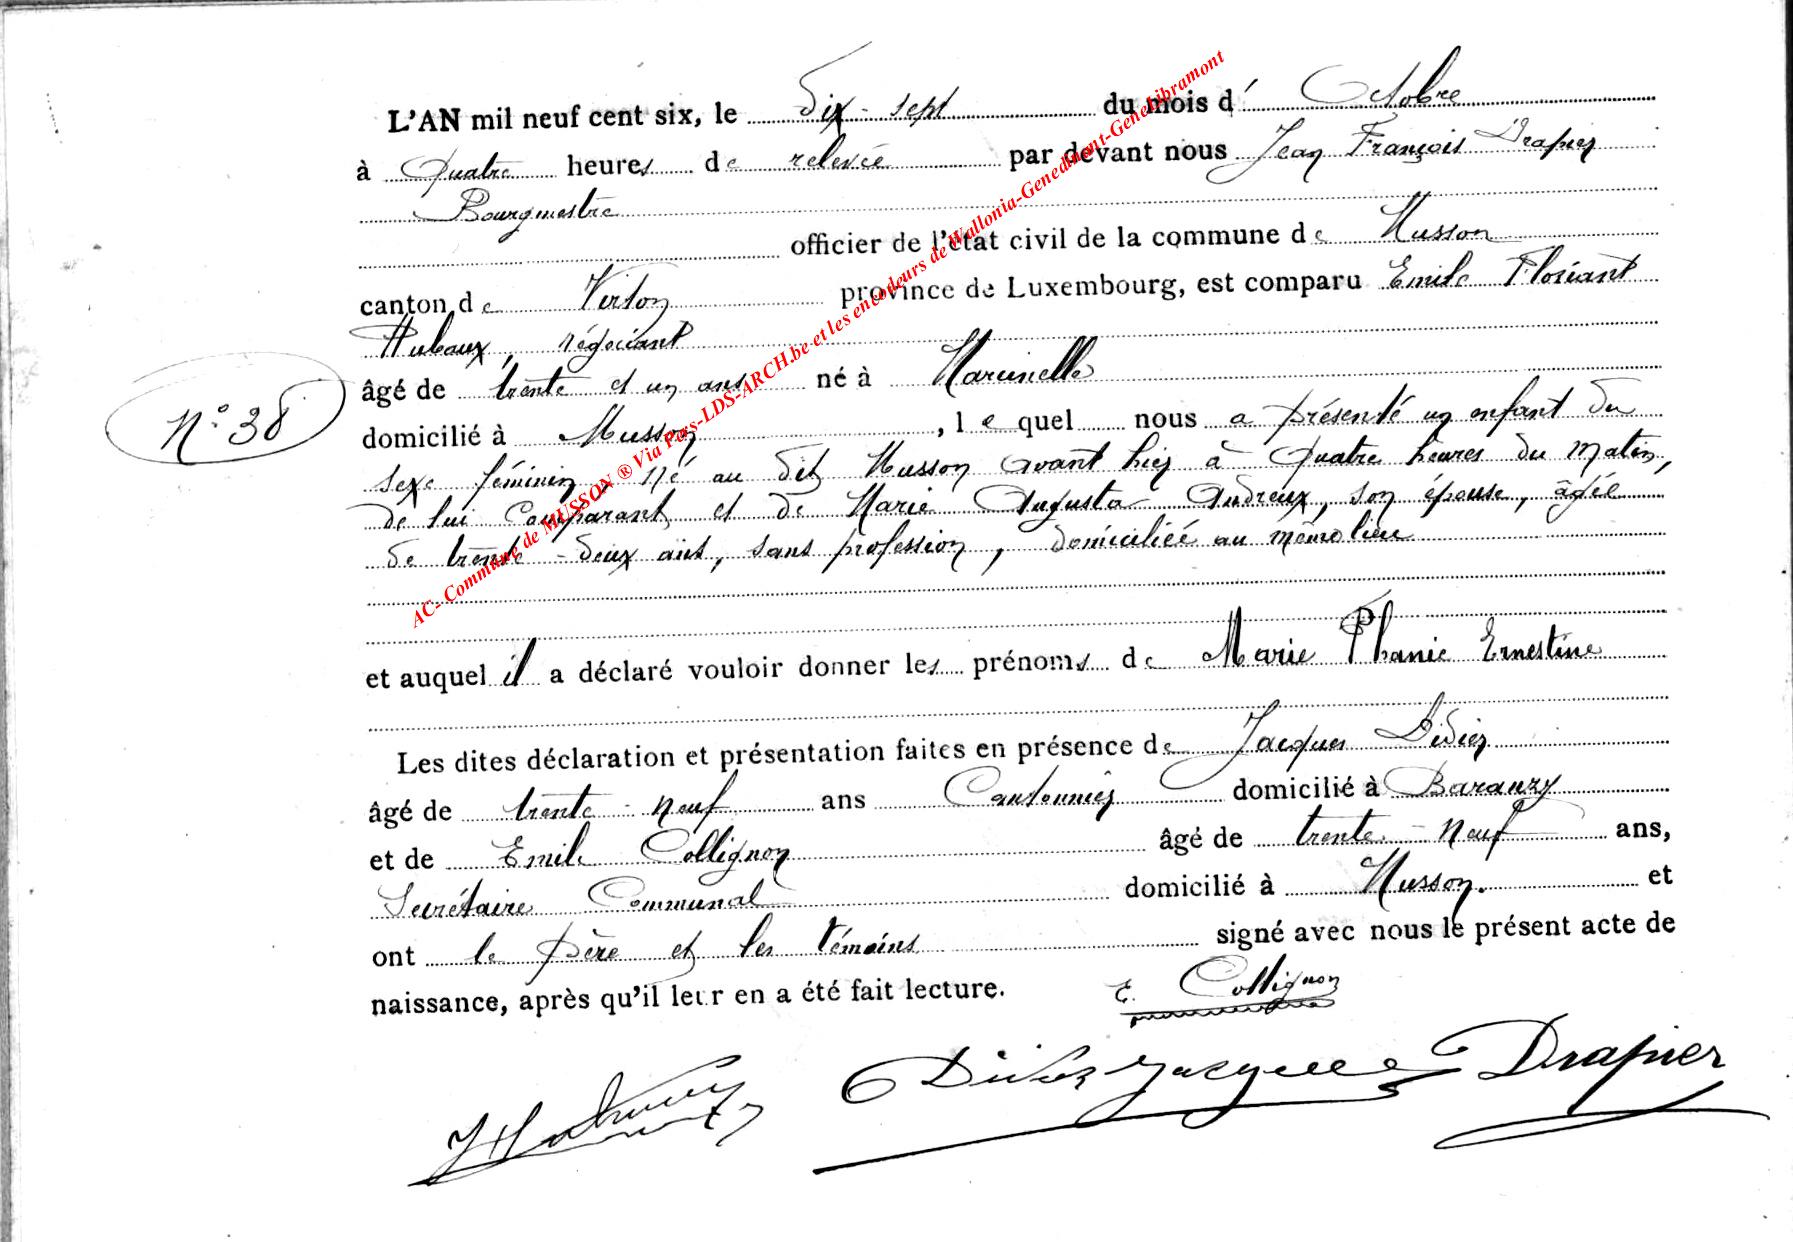 L'AN mil neuf cent six, le Dix-sept du mois d' Octobre
à Quatre heures de relevée par devant nous Jean François Drapier
Bourgmestre
officier de l'état civil de la commune de Musson
canton de Virton province de Luxembourg, est comparu Emile Floriant
Hubaux, négociant
âgé de trente et un ans né à Marcinelle
N° 38
domicilié à Musson, lequel nous a présenté un enfant du
sexe féminin, né au dit Musson avant hier à Quatre heures du matin,
de lui Comparant et de Marie Augusta Andreux, son épouse, âgée
de trente-deux ans, sans profession, domiciliée au même lieu
et auquel il a déclaré vouloir donner les prénoms de Marie Phanie Ernestine
Les dites déclaration et présentation faites en présence de Jacques Didier
âgé de trente-neuf ans Cantonnier domicilié à Baranzy
et de Emile Collignon âgé de trente-neuf ans,
Secrétaire Communal domicilié à Musson. et
ont le père et les témoins signé avec nous le présent acte de
naissance, après qu'il leur en a été fait lecture.
E. Collignon
Didier Jacques Drapier
AC- Commune de MUSSON ® Via Pars-LDS-ARCH.be et les encodeurs de Wallonia-Genedinant-Genelibramont